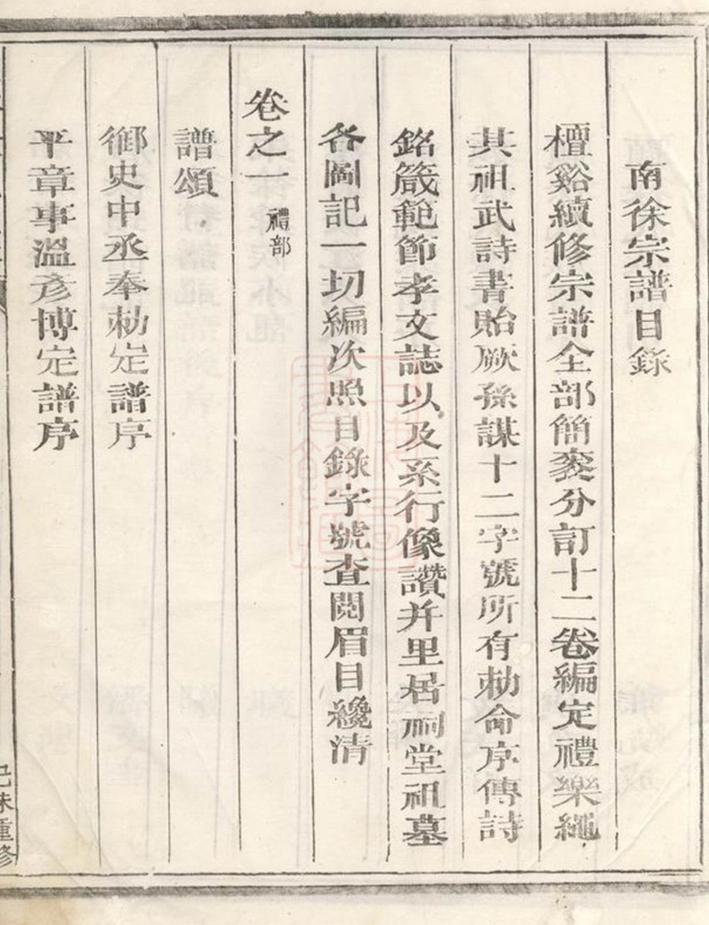 南徐宗譜目錄
檀谿續修宗譜全部簡袠分訂十二卷編定禮樂繩
其祖武詩書貽厥孫謀十二字號所有勅命序傳詩
銘箴範節孝文誌以及系行像讚并里居祠堂祖墓
各圖記一切編次照目錄字號查閱眉目纔清
卷之一 禮部
譜頌
御史中丞奉勅定譜序
平章事溫彥博定譜序
己未重修